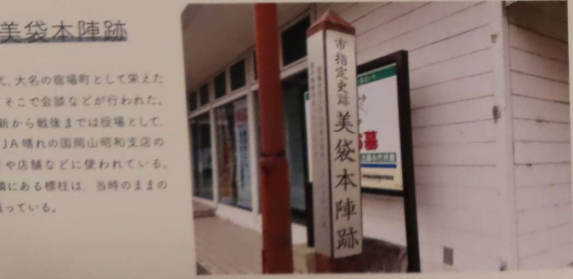 美袋本陣跡
、大名の宿場町として栄えた
そこで会談などが行われた。
新から戦後までは役場として、
JA晴れの国岡山昭和支店の
や店舗などに使われている。
隣にある標柱は、当時のままの
っている。
市指定史跡 美袋本陣跡